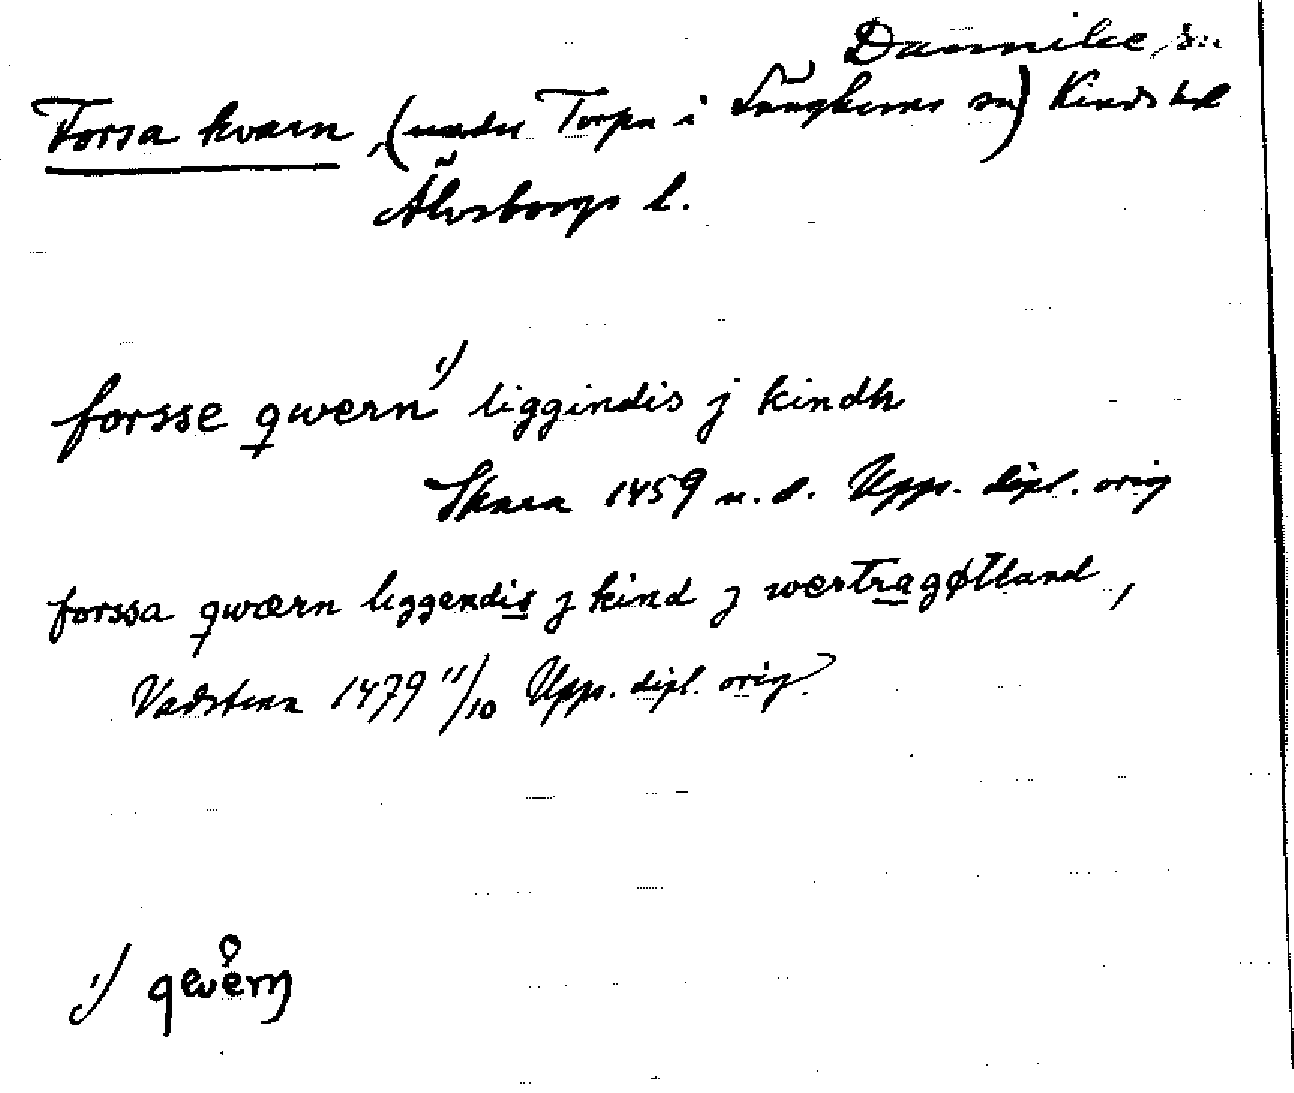 Dannike sn
Forsa kvarn, (under Torpa i Länghems sn) Kinds hd
Älvsborgs l.
forsse qwern 1) liggindis j kindh
Skara 1459 u. d. Upps. dipl. orig
forssa qwærn liggendis j kind j wæstragøtland,
Vadstena 1479 11/10 Upps. dipl. orig.
1) qwern